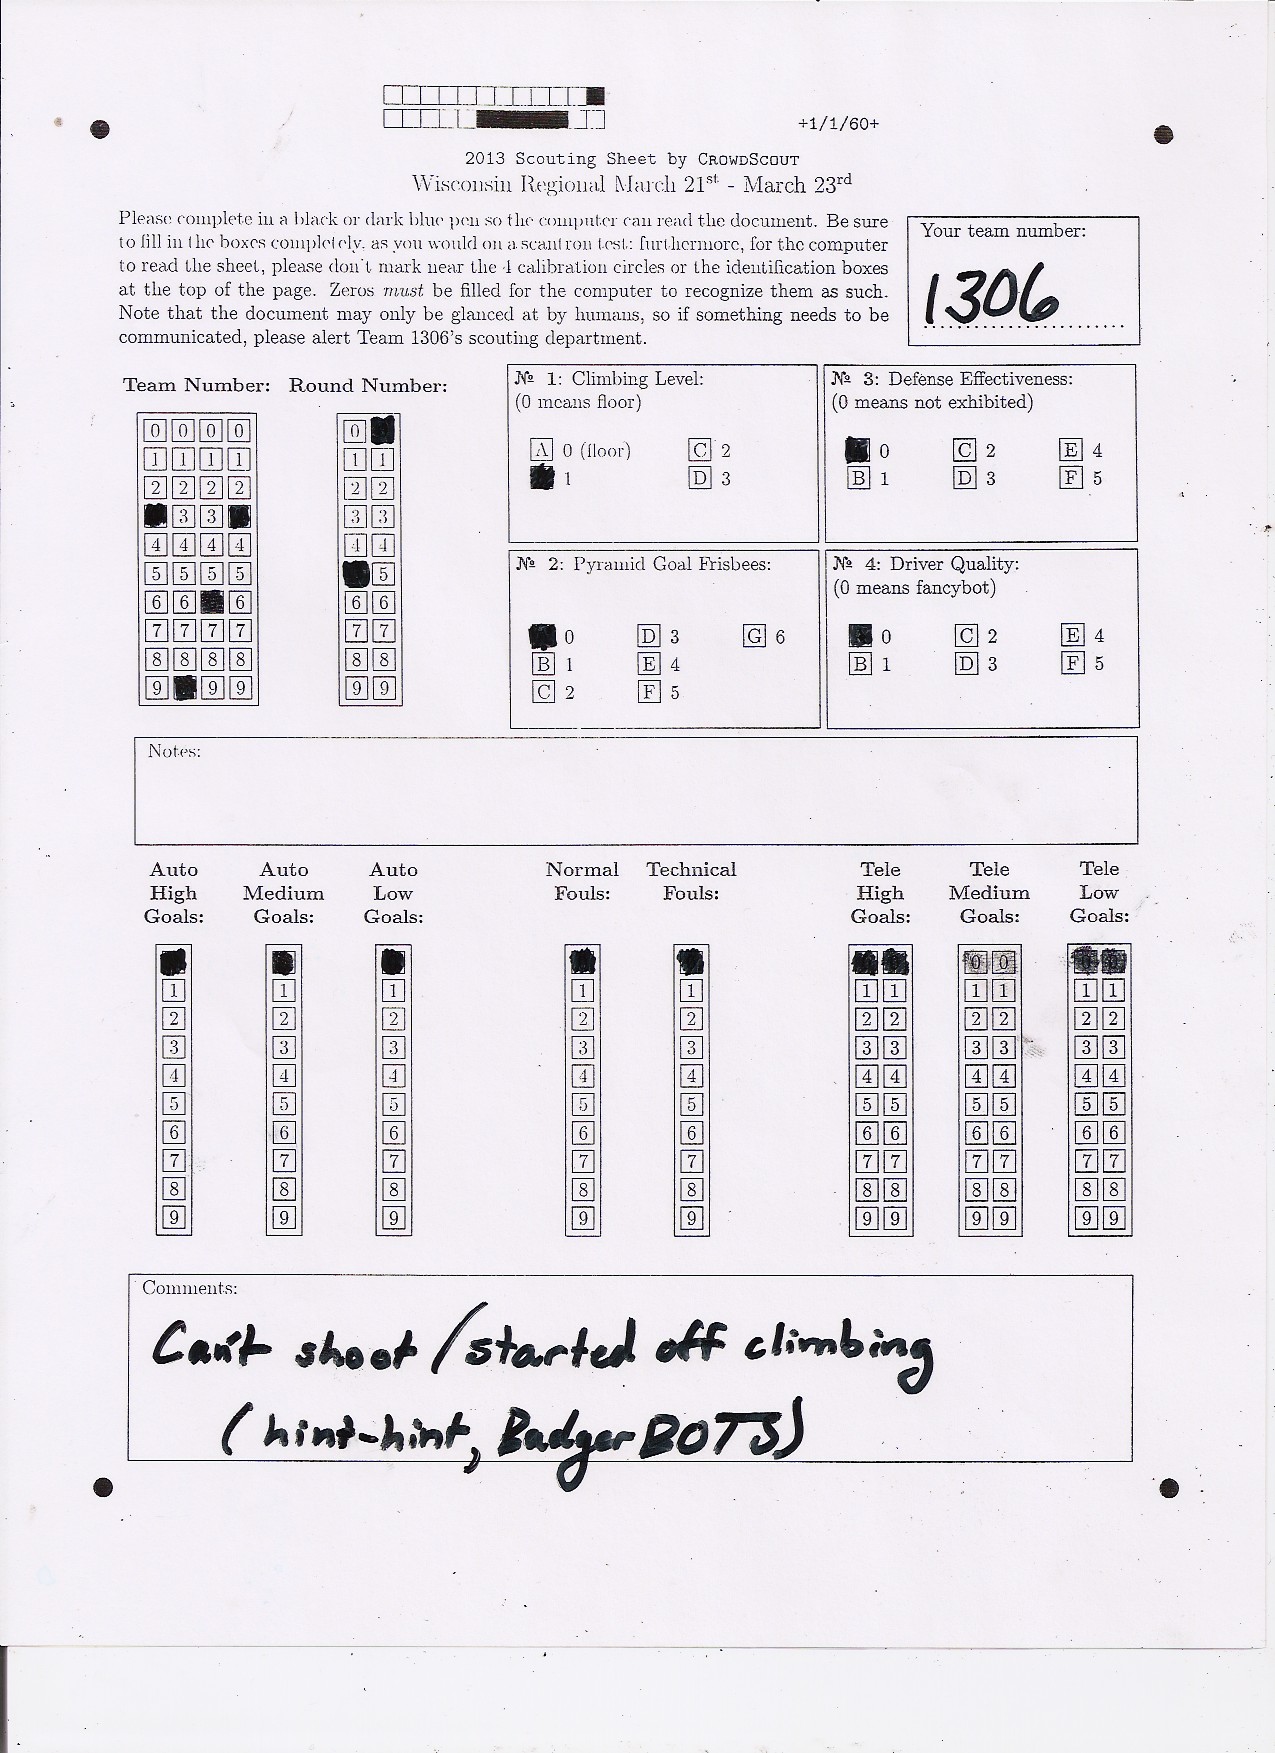 +1/1/60+
2013 Scouting Sheet by CROWDSCOUT
Wisconsin Regional March 21st - March 23rd
Please complete in a black or dark blue pen so the computer can read the document. Be sure
to fill in the boxes completely, as you would on a scantron test; furthermore, for the computer
to read the sheet, please don't mark near the 4 calibration circles or the identification boxes
at the top of the page. Zeros must be filled for the computer to recognize them as such.
Note that the document may only be glanced at by humans, so if something needs to be
communicated, please alert Team 1306's scouting department.
Your team number:
1306
Team Number: Round Number:
0 0 0 0 0
1 1 1 1 1 1
2 2 2 2 2 2
3 3 3 3
4 4 4 4 4 4
5 5 5 5 5
6 6 6 6 6
7 7 7 7 7 7
8 8 8 8 8 8
9 9 9 9 9
№ 1: Climbing Level:
(0 means floor)
A 0 (floor) C 2
1 D 3
№ 3: Defense Effectiveness:
(0 means not exhibited)
0 C 2 E 4
B 1 D 3 F 5
№ 2: Pyramid Goal Frisbees:
0 D 3 G 6
B 1 E 4
C 2 F 5
№ 4: Driver Quality:
(0 means fancybot)
0 C 2 E 4
B 1 D 3 F 5
Notes:
Auto Auto Auto Normal Technical Tele Tele Tele
High Medium Low Fouls: Fouls: High Medium Low
Goals: Goals: Goals: Goals: Goals: Goals:
0 0
1 1 1 1 1 1 1 1 1 1 1
2 2 2 2 2 2 2 2 2 2 2
3 3 3 3 3 3 3 3 3 3 3
4 4 4 4 4 4 4 4 4 4 4
5 5 5 5 5 5 5 5 5 5 5
6 6 6 6 6 6 6 6 6 6 6
7 7 7 7 7 7 7 7 7 7 7
8 8 8 8 8 8 8 8 8 8 8
9 9 9 9 9 9 9 9 9 9 9
Comments:
Can't shoot / started off climbing
(hint-hint, BadgerBOTS)